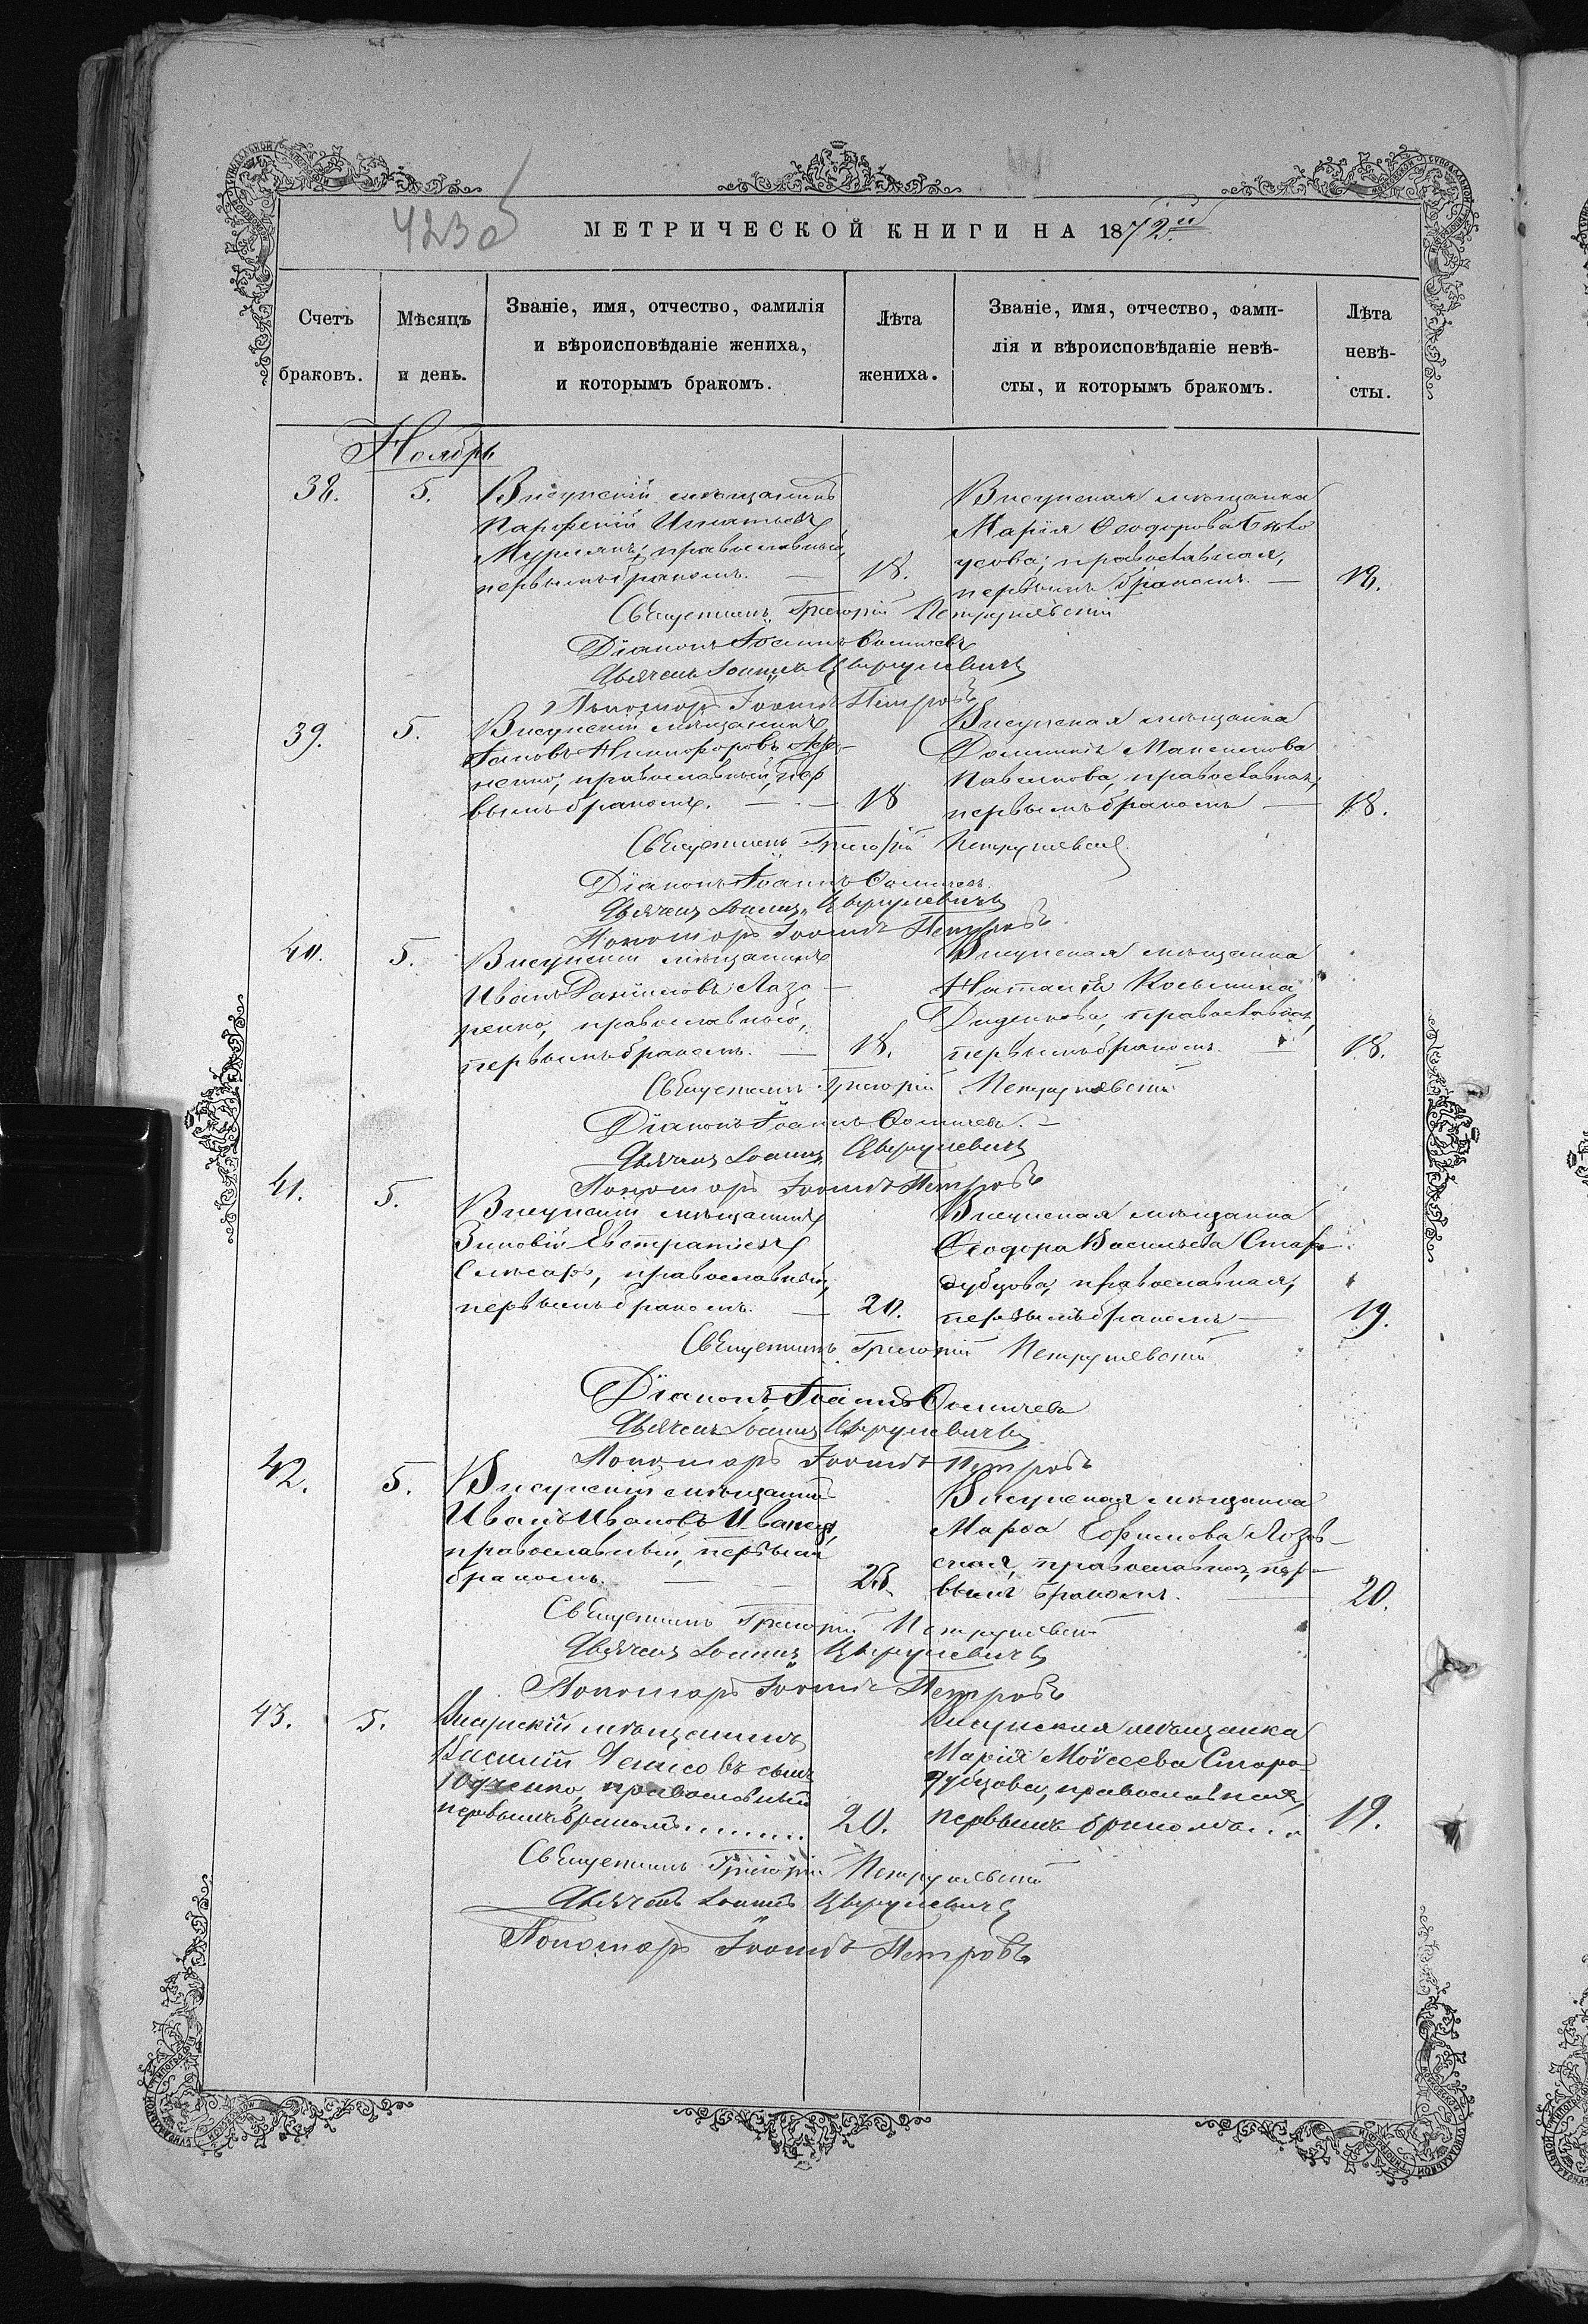 423об
МЕТРИЧЕСКОЙ КНИГИ НА 1872й
Счетъ браковъ.
Мѣсяцъ и день.
Званіе, имя, отчество, фамилія
и вѣроисповѣданіе жениха,
и которымъ бракомъ.
Лѣта жениха.
Званіе, имя, отчество, фами-
лія и вѣроисповѣданіе невѣ-
сты, и которымъ бракомъ.
Лѣта невѣ-
сты.
Ноябрь
38. 5.
Висунскій мѣщанинъ
Парфеній Игнатьевъ
православный,
первымъ бракомъ. — 18.
Висунская мѣщанка
Марія Ѳеодорова Бѣло
усова, православная,
первымъ бракомъ. — 18.
Священникъ Григорій
Діаконъ Іоаннъ Ѳомичевъ
Дьячекъ Іоаннъ
Пономарь Іоаннъ Петровъ
39. 5.
Висунскій мѣщанинъ
Іаковъ Никифоровъ
православный, пер
вымъ бракомъ. — 18
Висунская мѣщанка
Домникія Максимова
Павленкова, православная,
первымъ бракомъ — 18.
Священникъ Григорій
Діаконъ Іоаннъ Ѳомичевъ
Дьячекъ Іоаннъ
Пономарь Іоаннъ Петровъ
40. 5.
Висунскій мѣщанинъ
Иванъ Даніиловъ Лаза
ренко, православный,
первымъ бракомъ. — 18.
Висунская мѣщанка
Наталія Косьмина
Диденкова, православная,
первымъ бракомъ. — 18.
Священникъ Григорій
Діаконъ Іоаннъ Ѳомичевъ. —
Дьячекъ Іоаннъ
Пономарь Іоаннъ Петровъ
41. 5.
Висунскій мѣщанинъ
Зиновій Евстратіевъ
Слюсарь, православный,
первымъ бракомъ. — 20.
Висунская мѣщанка
Ѳеодора Васильева Старо
дубцова, православная,
первымъ бракомъ — 19.
Священникъ Григорій
Діаконъ Іоаннъ Ѳомичевъ
Дьячекъ Іоаннъ
Пономарь Іоаннъ Петровъ
42. 5.
Висунскій мѣщанинъ
Иванъ Ивановъ Иванецъ,
православный, первымъ
бракомъ. — — 23.
Висунская мѣщанка
Марѳа Ефимова Лозов-
ская, православная, пер-
вымъ бракомъ. — 20.
Священникъ Григорій
Дьячекъ Іоаннъ
Пономарь Іоаннъ Петровъ
43. 5.
Висунскій мѣщанинъ
Василій Денисовъ сынъ
Юдченко, православный
первымъ бракомъ......... 20.
Висунская мѣщанка
Марія Моисеева Старо
дубцова, православная,
первымъ бракомъ... 19.
Священникъ Григорій
Дьячекъ Іоаннъ
Пономарь Іоаннъ Петровъ